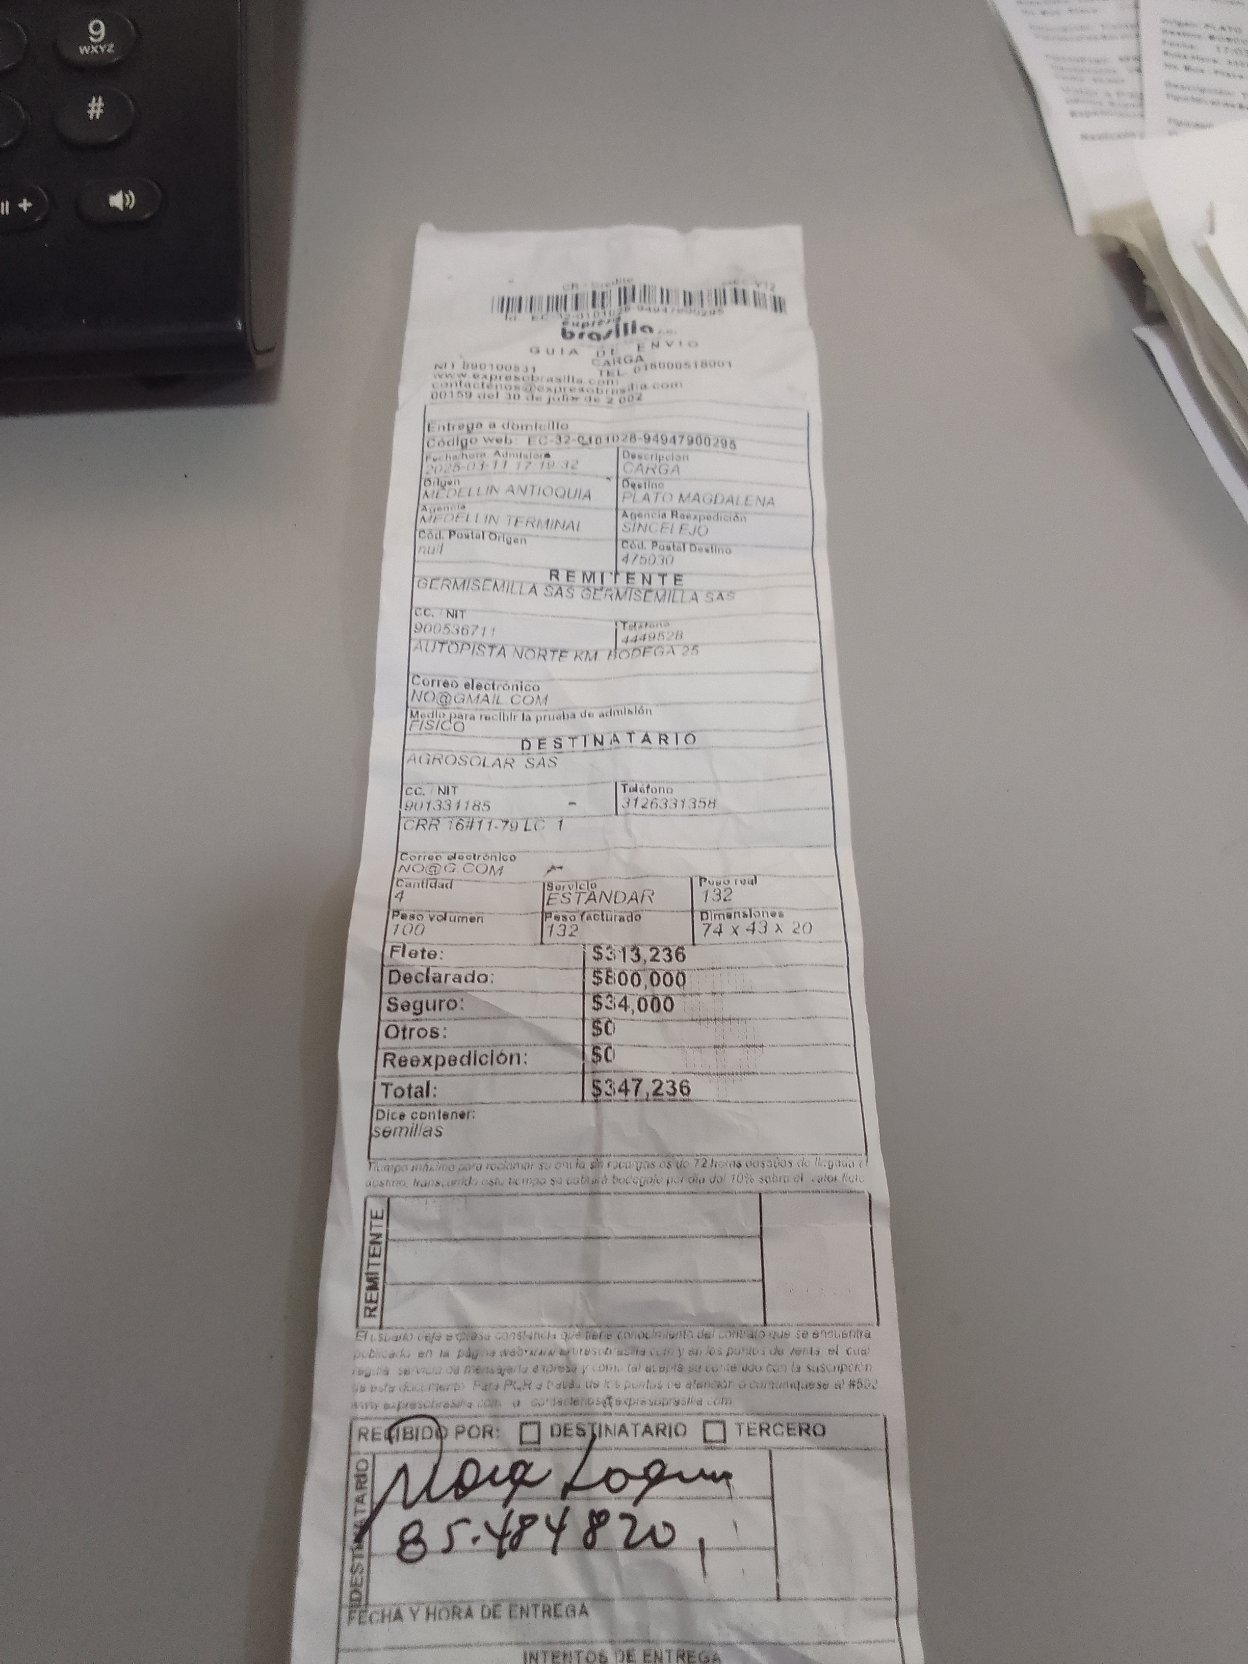 9
WXYZ
#
CR - Credito
Id. EC-32-0101028-94947900295
expreso
brasilia
GUIA DE ENVIO
CARGA
NIT 890100531 TEL. 018000518001
www.expresobrasilia.com
contactenos@expresobrasilia.com
00159 del 30 de julio de 2 002
Entrega a domicilio
Código web: EC-32-0101028-94947900295
Fecha/hora Admisión Descripción
2025-03-11 17:19:32 CARGA
Origen Destino
MEDELLIN ANTIOQUIA PLATO MAGDALENA
Agencia Agencia Reexpedición
MEDELLIN TERMINAL SINCELEJO
Cód. Postal Origen Cód. Postal Destino
null 475030
REMITENTE
GERMISEMILLA SAS GERMISEMILLA SAS
CC. / NIT Teléfono
900536711 4449528
AUTOPISTA NORTE KM. BODEGA 25
Correo electrónico
NO@GMAIL.COM
Medio para recibir la prueba de admisión
FISICO
DESTINATARIO
AGROSOLAR SAS
CC. / NIT Teléfono
901331185 - 3126331358
CRR 16#11-79 LC 1
Correo electrónico
NO@G.COM
Cantidad Servicio Peso real
4 ESTANDAR 132
Peso volumen Peso facturado Dimensiones
100 132 74 x 43 x 20
Flete: $313,236
Declarado: $800,000
Seguro: $34,000
Otros: $0
Reexpedición: $0
Total: $347,236
Dice contener:
semillas
Tiempo máximo para reclamar su envío sin recargos es de 72 horas pasadas de llegada a
destino, transcurrido este tiempo se cobrará bodegaje por día del 10% sobre el valor flete
REMITENTE
El usuario deja expresa constancia que tiene conocimiento del contrato que se encuentra
publicado en la página web www.expresobrasilia.com y en los puntos de venta el cual
regula servicio de mensajería expresa y como tal acepta su contenido con la suscripción
de este documento. Para PQR a través de los puntos de atención o comuníquese al #502
www.expresobrasilia.com o contactenos@expresobrasilia.com
RECIBIDO POR: DESTINATARIO TERCERO
DESTINATARIO
85.484820
FECHA Y HORA DE ENTREGA
INTENTOS DE ENTREGA